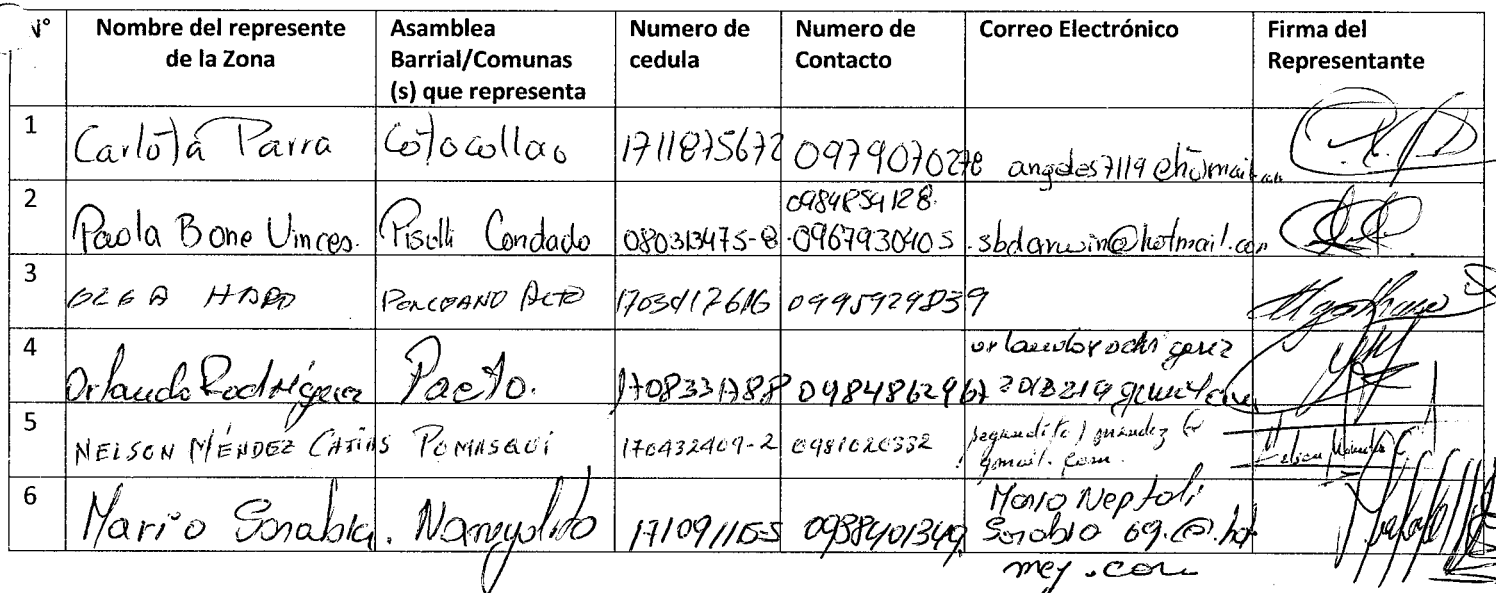 N° Nombre del represente de la Zona Asamblea Barrial/Comunas (s) que representa Numero de cedula Numero de Contacto Correo Electrónico Firma del Representante
1 Carlota Parra Cotocollao 1711875672 0979070278 angeles7119@hotmail.com
0984854128
2 Paola Bone Vinces. Pisulli Condado 080313475-8 0967930405 sbdarwin@hotmail.com
3 OLGA HARO PONCEANO ALTO 0995929839
4 Orlando Rodríguez Pacto. 1708331788 0984862967
5 NELSON MÉNDEZ POMASQUI 170432409-2 0981020332
gmail.com.
6 Mario Sarabia. Nanegalito 0988401349 Mario Neptali
Sarabia 69.@.hot
mey.com